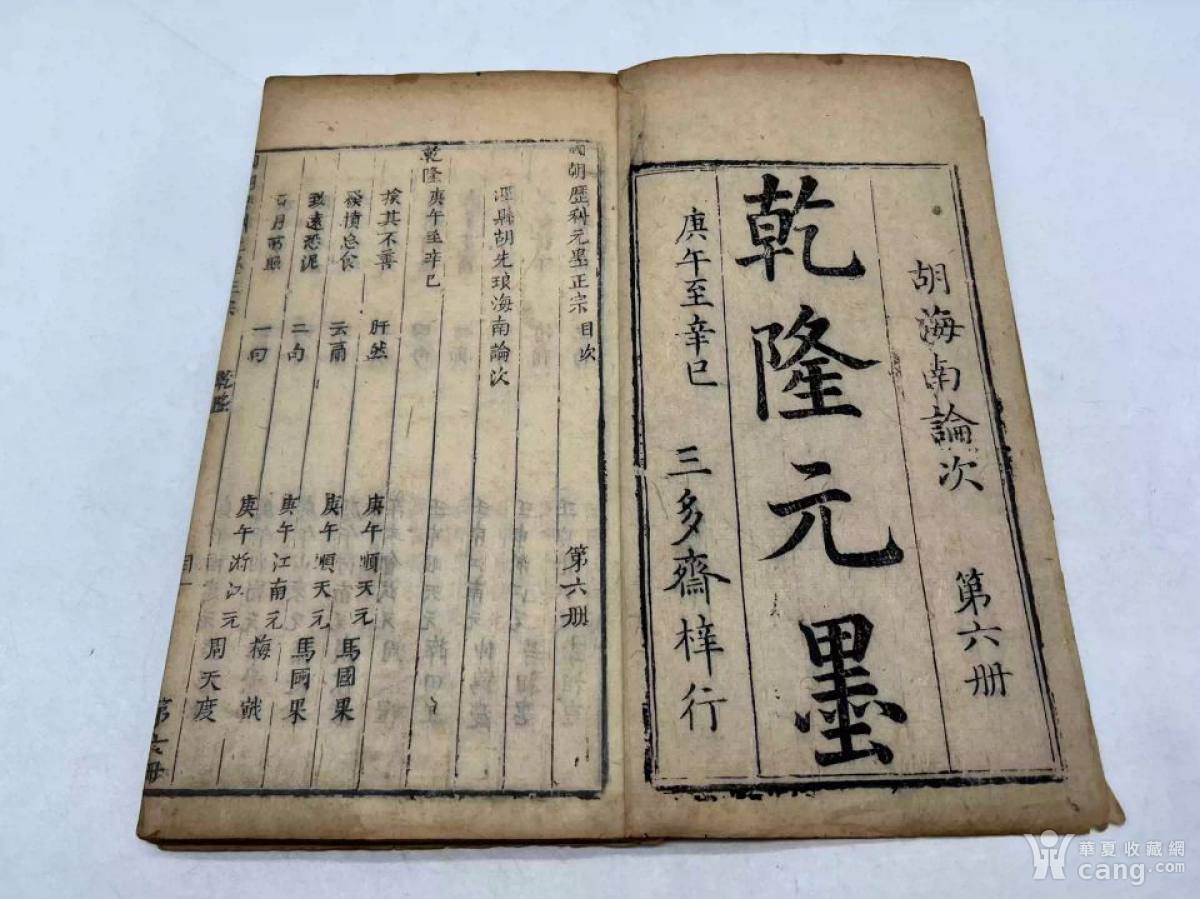 胡海南論次　第六册
乾隆元墨
庚午至辛巳　三多齋梓行
國朝歷科元墨正宗　目次　第六册
涇縣胡先琅海南論次
乾隆庚午至辛巳
揜其不善　肝然　庚午順天元　馬國果
發憤忘食　云爾　庚午順天元　馬國果
致遠恐泥　二句　庚午江南元　梅戭
日月所照　一句　庚午浙江元　周天度
乾隆　目一　第六册
華夏收藏網
cang.com